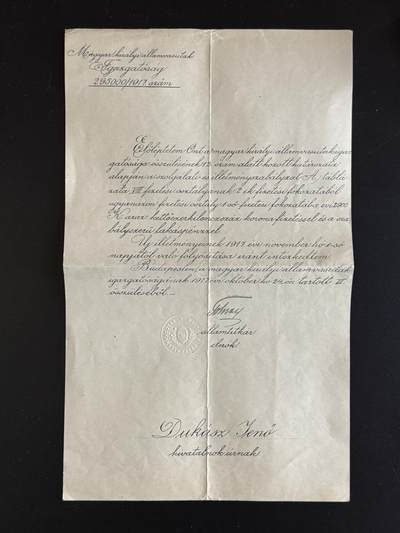 Magyar királyi államvasutak
Igazgatóság
295000/1917. szám.
Előléptetem Önt a magyar királyi államvasutak igaz-
gatósága összülésének 12. szám alatt hozott határozata
alapján a szolgálati és illetményszabályzat A. tábla
zata VIII fizetési osztályának 2 ik fizetési fokozatából
ugyanazon fizetési osztály 1 ső fizetési fokozatába évi 2900
K azaz kettőezerkilencszáz korona fizetéssel és a sza
bályszerű lakáspénzzel.
Új illetményeinek 1917. évi november hó 1-ső
napjától való folyósítása iránt intézkedtem.
Budapesten, a magyar királyi államvasutak
igazgatóságának 1917 évi október hó 24 én tartott VI
összüléséből.
államtitkár
elnök
Dukász Jenő
hivatalnok úrnak